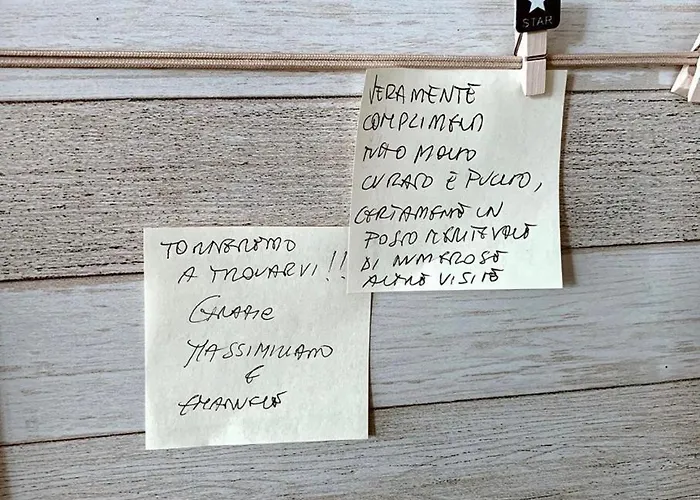 STAR
VERAMENTE
COMPLIMENTI
TUTTO MOLTO
CURATO E PULITO,
CERTAMENTE UN
POSTO MERITEVOLE
DI NUMEROSE
ALTRE VISITE
TORNEREMO
A TROVARVI!!
GRAZIE
MASSIMILIANO
E
EMANUELE